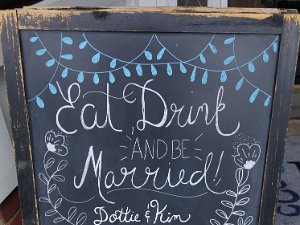 Eat Drink
AND BE
Married!
Dottie & Kim